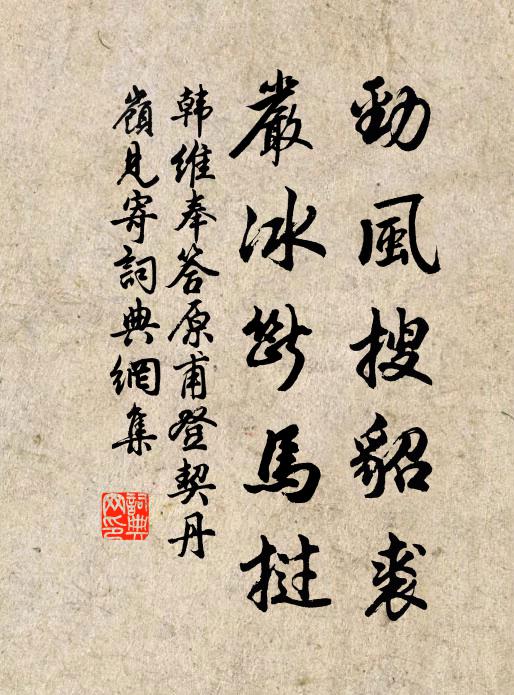 勁風搜貂裘
嚴冰斷馬撾
韩維奉答原甫登契丹
嶺見寄詞典網集
詞典网印